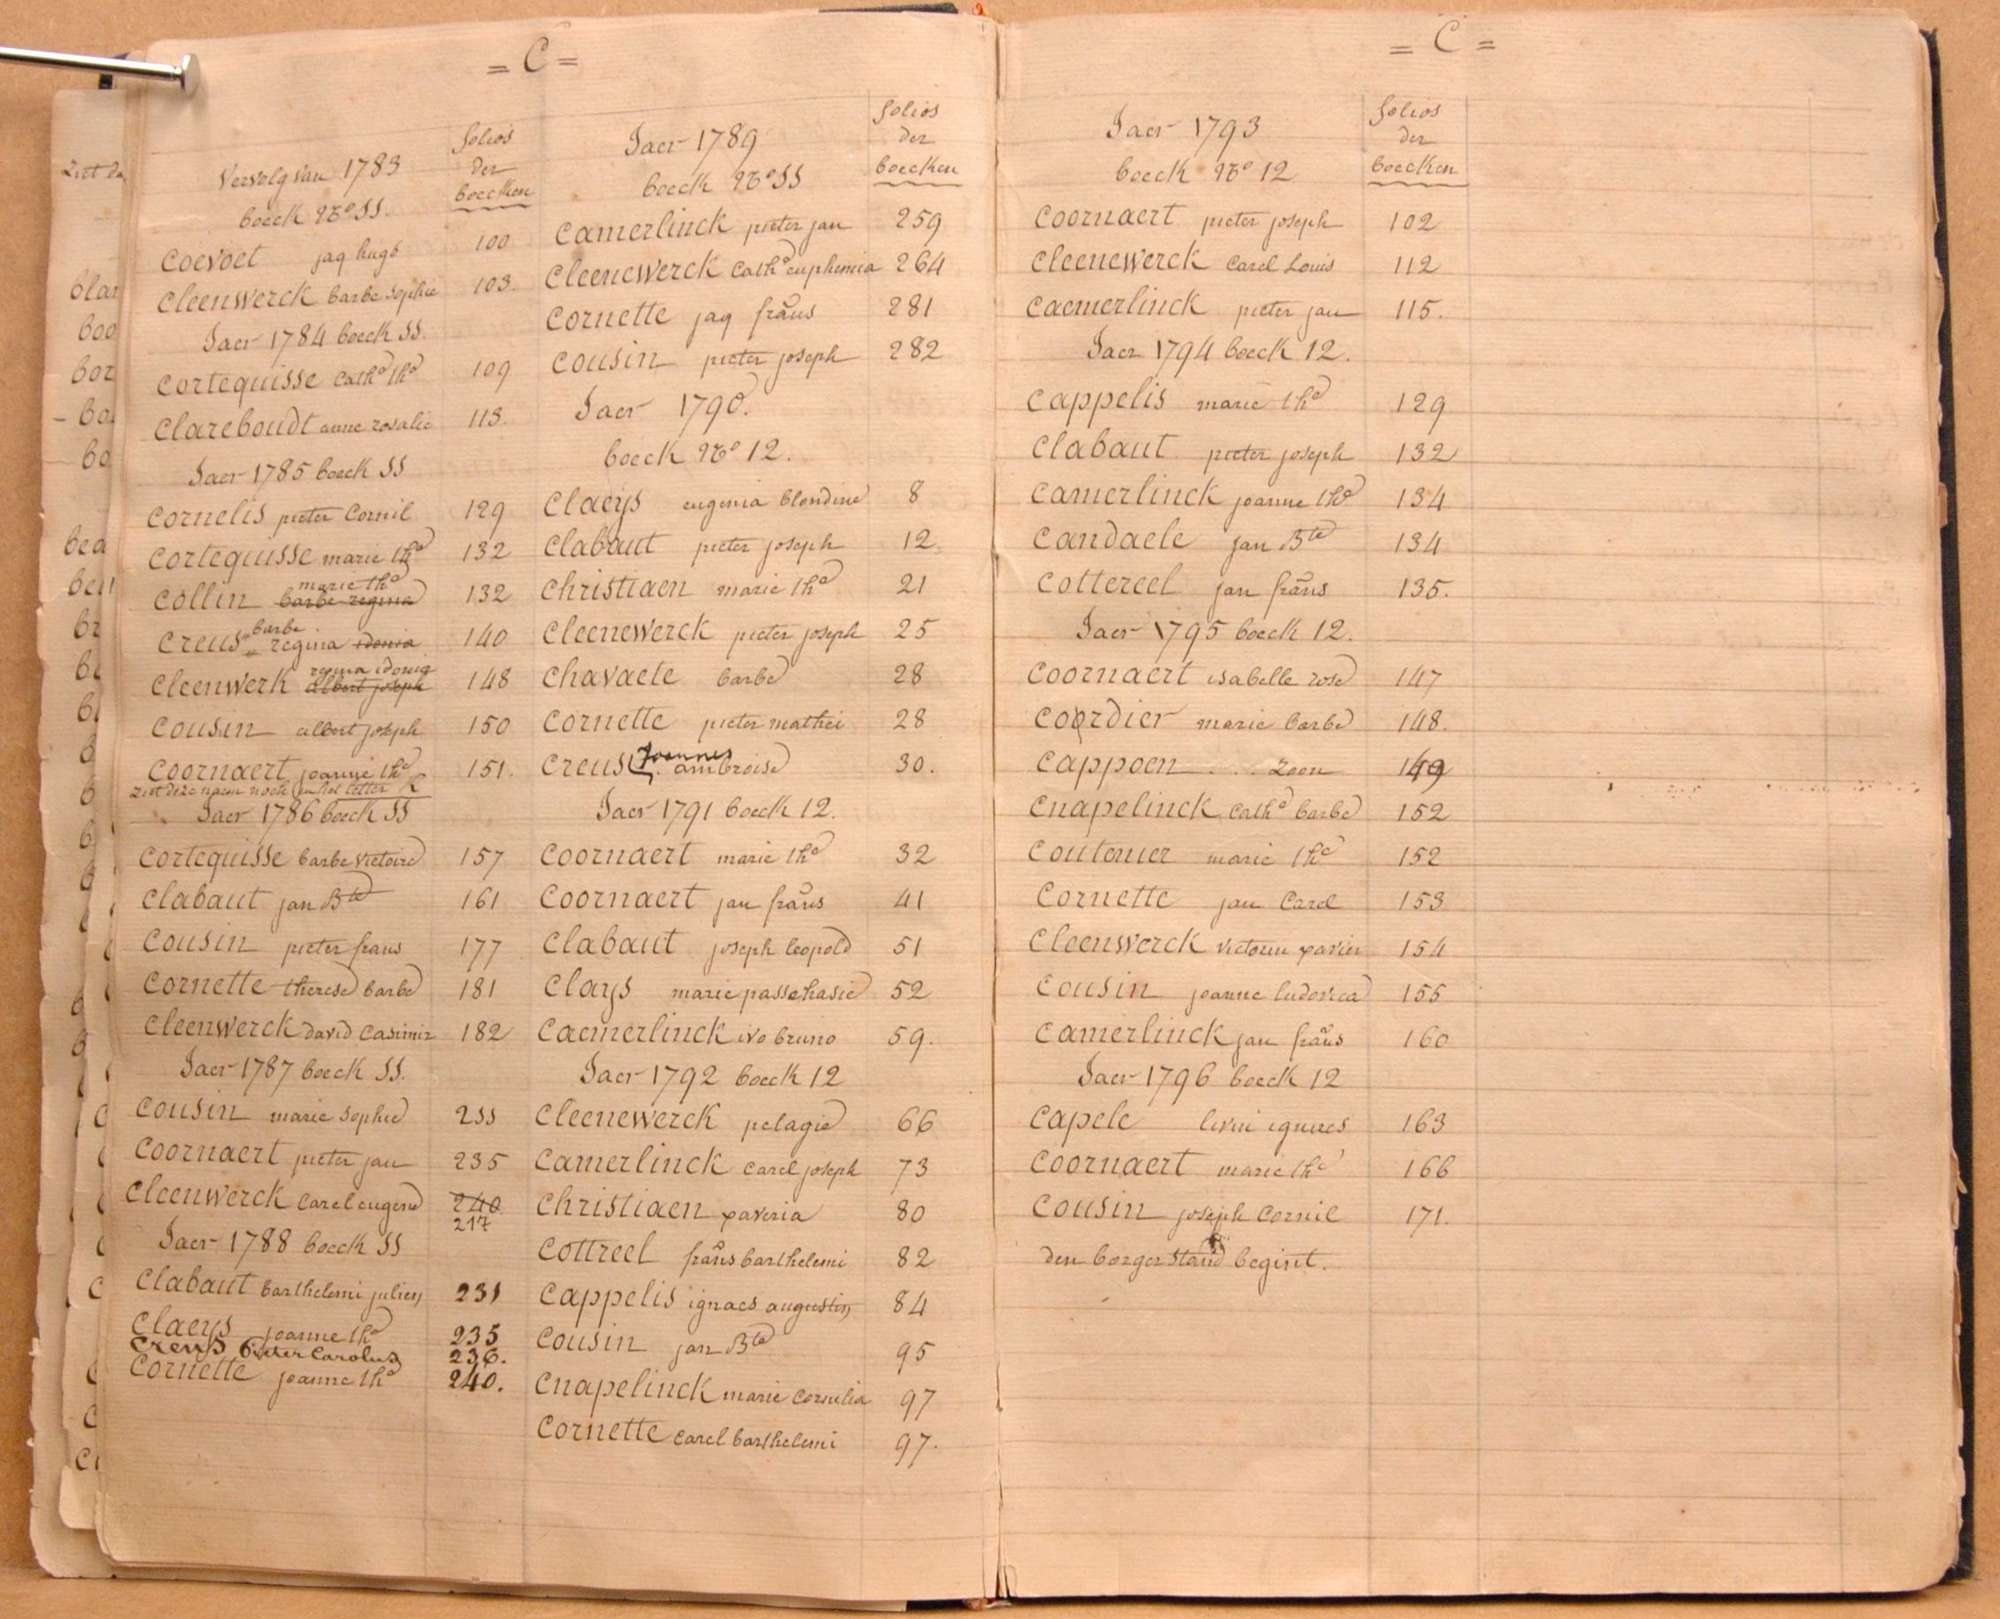 = C =
folios
der
boecken
vervolg van 1783
boeck No SS.
Coevoet jaq hugo 100
Cleenwerck barbe sophie 103.
Jaer 1784 boeck SS.
Cortequisse cathe the 109
Clareboudt anne rosalie 113.
Jaer 1785 boeck SS
Cornelis pieter Cornil 129
Cortequisse marie the 132
marie the
Collin barbe regina 132
barbe
Creus " regina idonia 140
regina idonia
Cleenwerk albert joseph 148
Cousin albert joseph 150
Coornaert joanne the 151.
ziet deze naem noch in het letter K
Jaer 1786 boeck SS
Cortequisse barbe victoire 157
Clabaut jan Bte 161
Cousin pieter frans 177
Cornette therese barbe 181
Cleenwerck david Casimir 182
Jaer 1787 boeck SS.
Cousin marie sophie 2SS
Coornaert pieter jan 235
Cleenwerck Carel eugene 240
217
Jaer 1788 boeck SS
Clabaut barthelemi julien 231
Claeys joanne the 235
Creus Pieter Carolus 236.
Cornette joanne the 240.
folios
der
boecken
Jaer 1789
boeck No SS
Camerlinck pieter jan 259
Cleenewerck Cathe euphemia 264
Cornette jaq frans 281
Cousin pieter joseph 282
Jaer 1790.
boeck No 12.
Claeys eugenia blondine 8
Clabaut pieter joseph 12
Christiaen marie the 21
Cleenewerck pieter joseph 25
Chavaete barbe 28
Cornette pieter mathei 28
Joannes
Creus ambroise 30.
Jaer 1791 boeck 12.
Coornaert marie the 32
Coornaert jan frans 41
Clabaut joseph leopold 51
Clays marie passchasie 52
Caemerlinck ivo bruno 59.
Jaer 1792 boeck 12
Cleenewerck pelagie 66
Camerlinck Carel joseph 73
Christiaen xaveria 80
Cottreel frans barthelemi 82
Cappelis ignaes augustin 84
Cousin jan Bte 95
Cnapelinck marie Cornelia 97
Cornette Carel barthelemi 97.
= C =
folios
der
boecken
Jaer 1793
boeck No 12
Coornaert pieter joseph 102
Cleenewerck Carel Louis 112
Caemerlinck pieter jan 115.
Jaer 1794 boeck 12.
Cappelis marie the 129
Clabaut pieter joseph 132
Camerlinck joanne the 134
Candaele jan Bte 134
Cottereel jan frans 135.
Jaer 1795 boeck 12.
Coornaert isabelle rose 147
Coordier marie barbe 148.
Cappoen . . . zoon 149
Cnapelinck Cathe barbe 152
Coutenier marie the 152
Cornette jan Carel 153
Cleenwerck victorin xavier 154
Cousin joanne ludovica 155
Camerlinck jan frans 160
Jaer 1796 boeck 12
Capele livin ignaes 163
Coornaert marie the 166
Cousin joseph Cornil 171.
den borger stand begint.